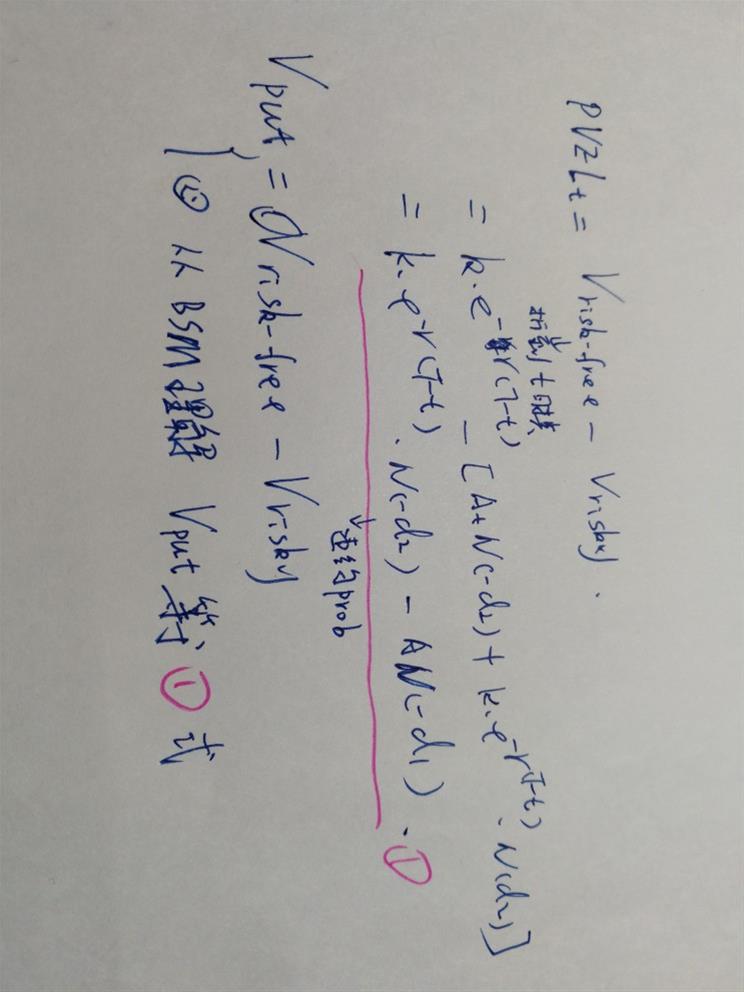 PVELt = Vrisk-free - Vrisky.
折到t时点
= k·e^-r(T-t) - [A+N(-d2) + k·e^-r(T-t)·N(d2)]
= k·e^-r(T-t)·N(-d2) - AN(-d1). ①
违约prob
Vput = Vrisk-free - Vrisky
② 从BSM理解 Vput 等 ① 式